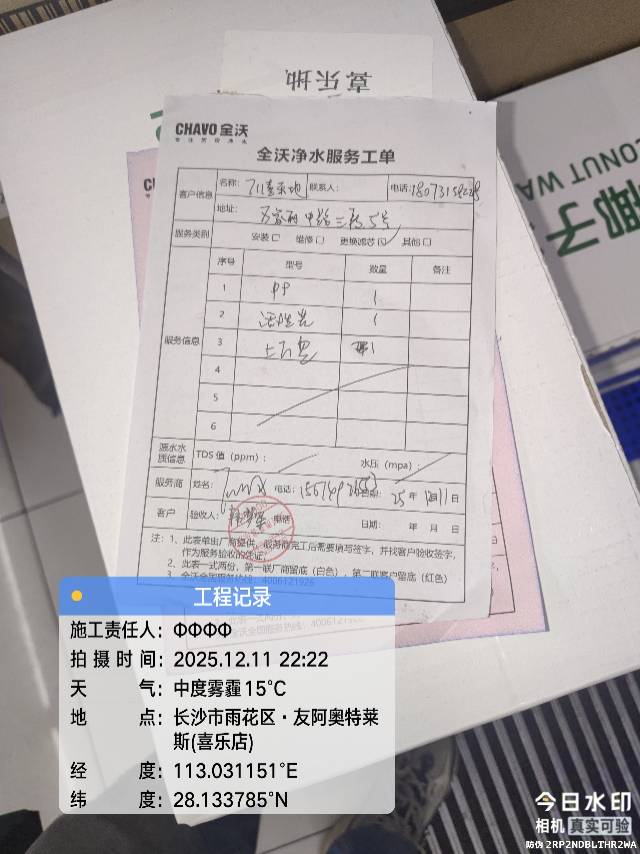 喜乐地
CHAVO 全沃
专注质效净水
全沃净水服务工单
客户信息
名称：711喜乐地
联系人：
电话:18073154228
地址：
万家丽中路三段5号
服务类别
安装□ 维修□ 更换滤芯☑ 其他□
服务信息
序号 型号 数量 备注
1 PP 1
2 活性炭 1
3 1
4
5
6
源水水质信息
TDS 值（ppm）：
水压（mpa）：
服务商
姓名：
电话：
日期：25 年 12月11日
客户
验收人：
电话
日期： 年 月 日
注：1、此表单由厂商提供，服务商完工后需要填写签字，并找客户验收签字，
作为服务验收的凭证；
2、此表一式两份，第一联厂商留底（白色），第二联客户留底（红色）
3、全沃全国服务热线：4006121926
全沃全国服务热线：40061219
椰子
CONUT WA
工程记录
施工责任人：ΦΦΦΦ
拍摄时间：2025.12.11 22:22
天 气：中度雾霾 15°C
地 点：长沙市雨花区·友阿奥特莱
斯(喜乐店)
经 度：113.031151°E
纬 度：28.133785°N
今日水印
相机 真实可验
防伪 2RP2NDBLTHR2WA